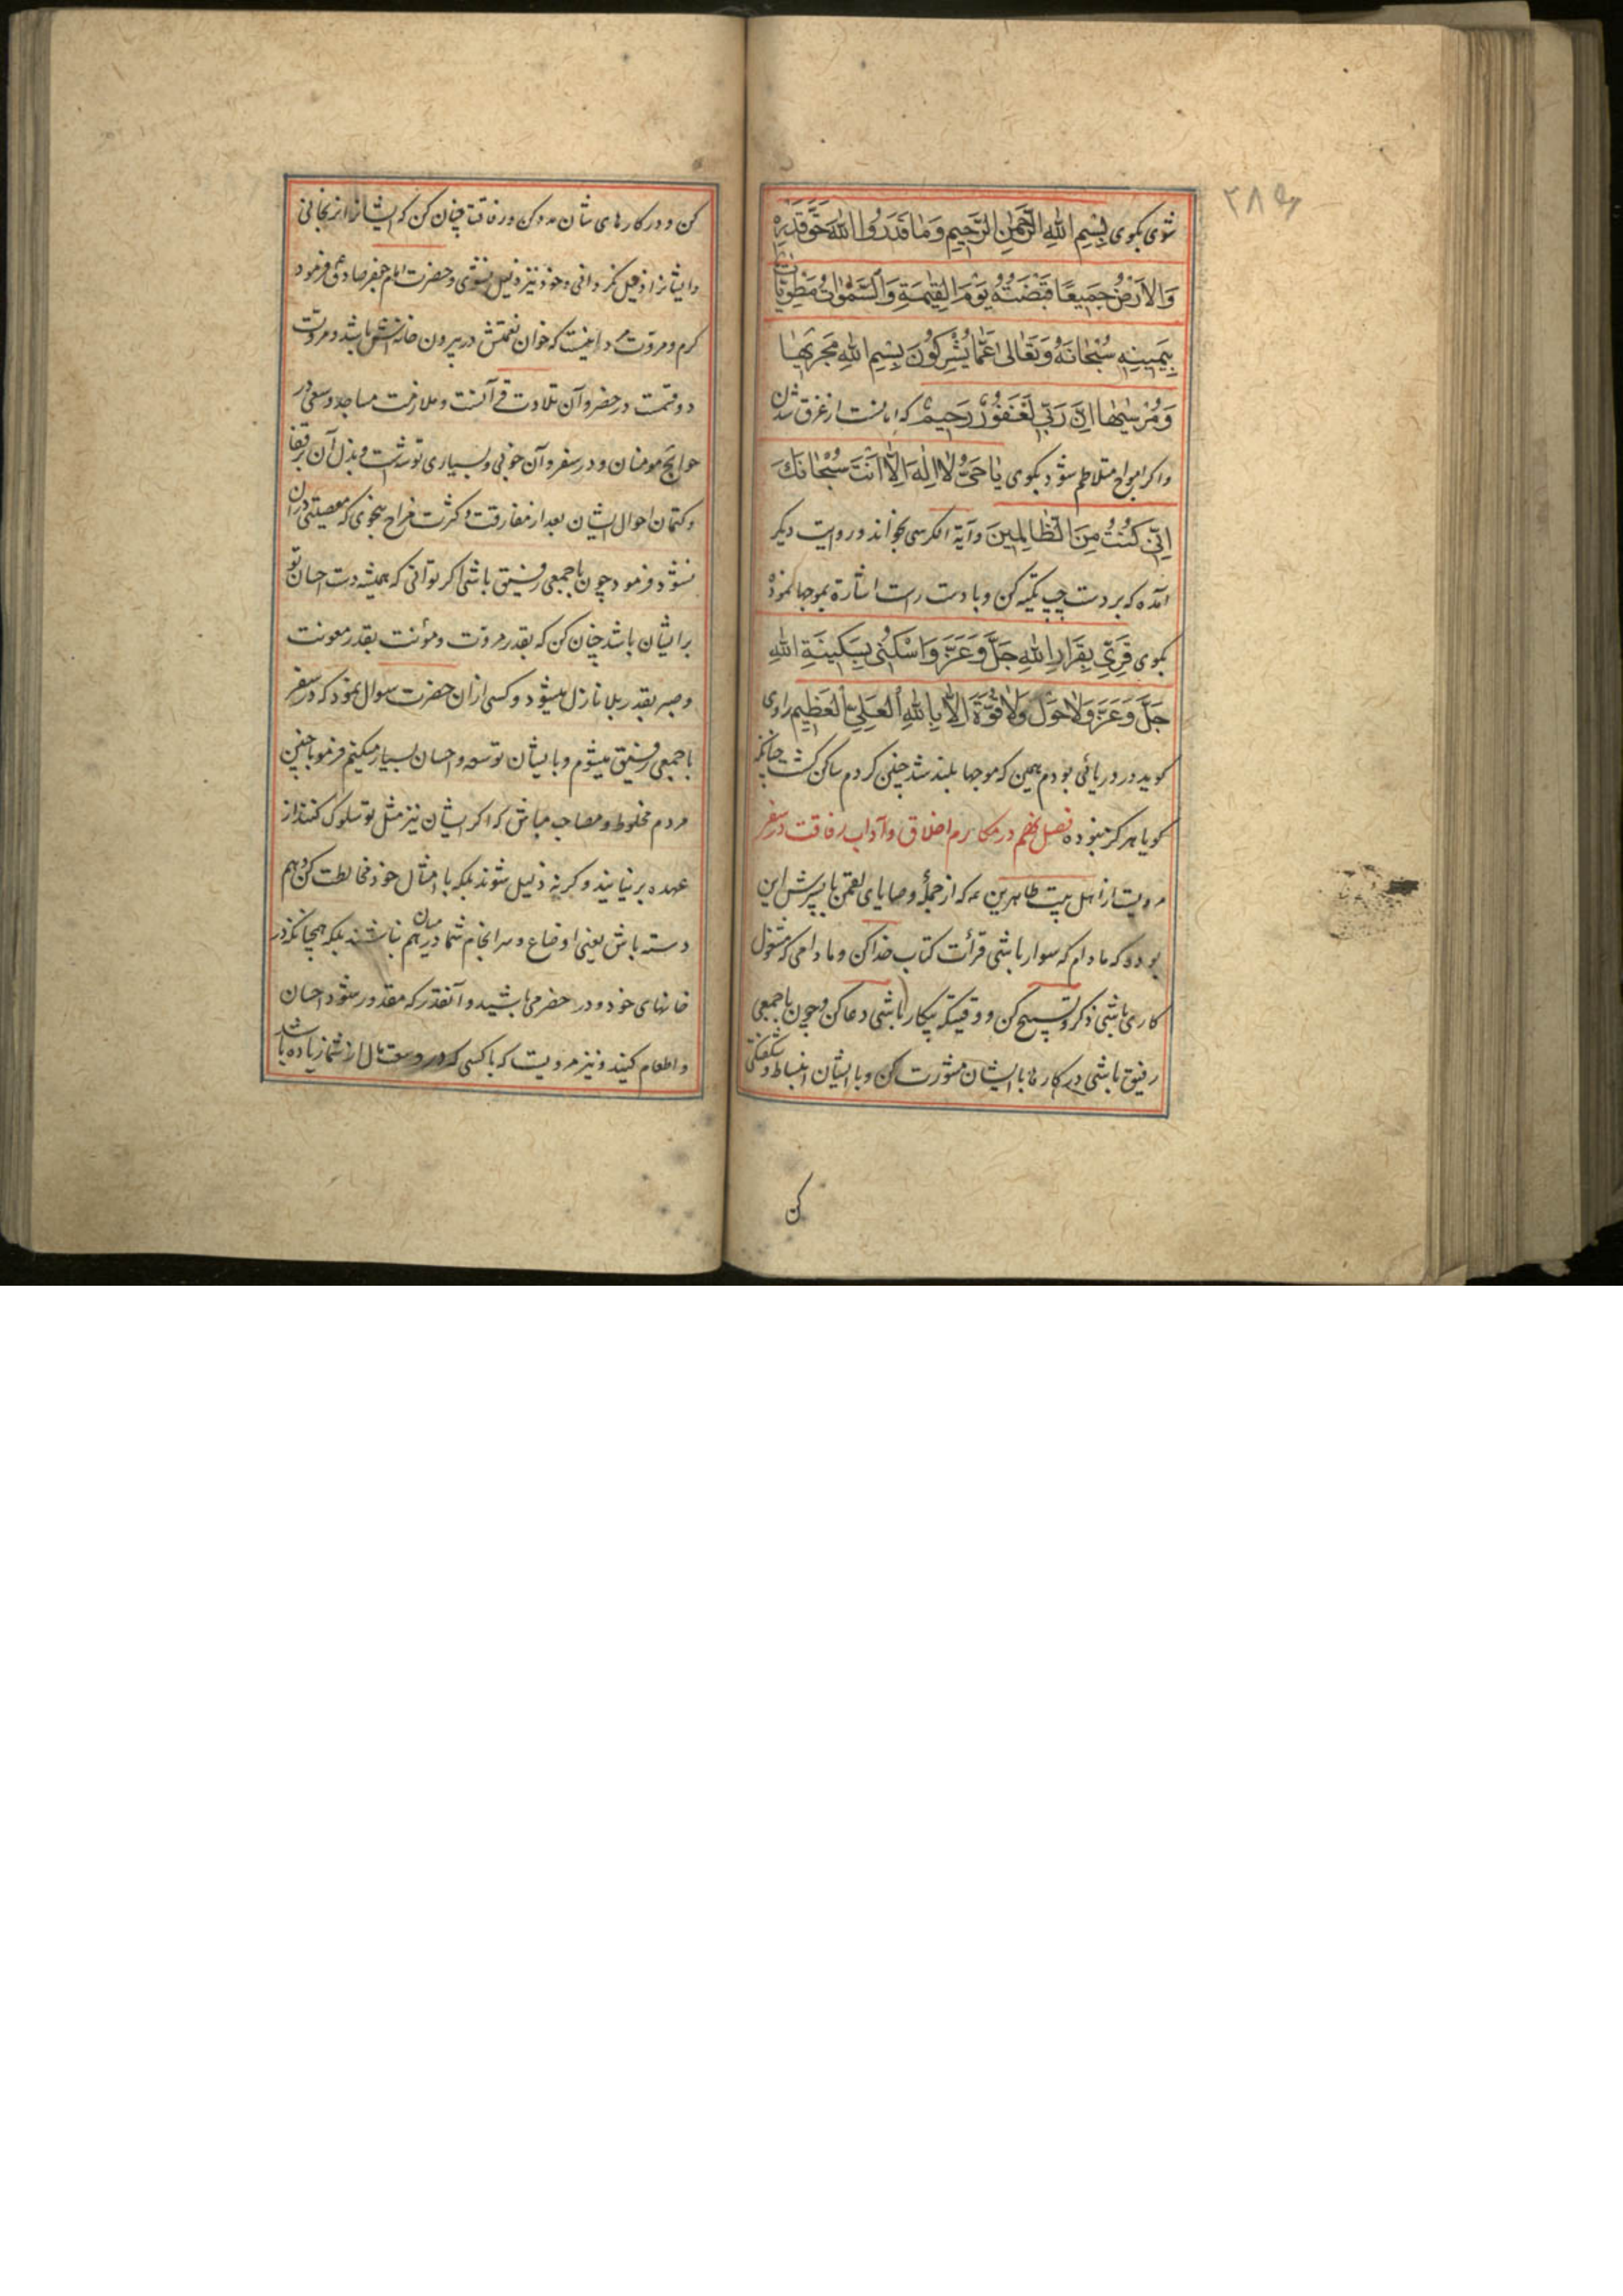 ۲۸۹
شوی بکوی بِسْمِ اللهِ الرَّحْمٰنِ الرَّحِیمِ وَمَا قَدَرُوا اللهَ حَقَّ قَدْرِهِ
وَالْاَرْضُ جَمِیعًا قَبْضَتُهُ یَوْمَ الْقِیٰمَةِ وَالسَّمٰوٰاتُ مَطْوِیّٰاتٌ
بِیَمِینِهِ سُبْحَانَهُ وَتَعَالٰی عَمَّا یُشْرِکُونَ بِسْمِ اللهِ مَجْرٰیهَا
وَمُرْسٰیهَا اِنَّ رَبِّی لَغَفُورٌ رَحِیمٌ که امانست از غرق شدن
واکر امواج متلاطم شود بکوی یَا حَیُّ لَا اِلٰهَ اِلَّا اَنْتَ سُبْحَانَکَ
اِنِّی کُنْتُ مِنَ الظَّالِمِینَ وآیة الکرسی بخواند ورویت دیکر
آمده که بر دست چپ تکیه کن وبا دست راست اشاره بموجها نموده
بکوی قَرِّی بِقَرَارِ اللهِ جَلَّ وَعَزَّ وَاسْکُنِی بِسَکِینَةِ اللهِ
جَلَّ وَعَزَّ وَلَا حَوْلَ وَلَا قُوَّةَ اِلَّا بِاللهِ الْعَلِیِّ الْعَظِیمِ راوی
کوید در دریائی بودم همین که موجها بلند شد چنین کردم ساکن کشت چنانکه
کویا هرکز نبوده فصل نهم در مکارم اخلاق وآداب رفاقت در سفر
مرویت از اهل بیت طاهرین ع که از جملهٔ وصایای لقمن با پسرش این
بود که مادام که سوار باشی قرأت کتاب خدا کن ومادامی که مشغول
کاری باشی ذکر وتسبیح کن ووقتیکه بیکار باشی دعا کن وچون با جمعی
رفیق باشی در کارها با ایشان مشورت کن وبا ایشان انبساط وشکفتکی
کن
کن ودر کارهای شان مدد کن ورفاقت چنان کن که ایشانرا نرنجانی
وایشانرا ذلیل نکردانی وخود نیز ذلیل نشوی وحضرت امام جعفر صادق ع فرمود
کرم ومروت مرد اینست که خوان نعمتش در بیرون خانه‌اش باشد ومروت
دو قسمت در حضر وآن تلاوت قرآنست وملازمت مساجد وسعی در
حوایج مومنان ودر سفر وآن خوبی وبسیاری توشه است وبذل آن برفقا
وکتمان احوال ایشان بعد از مفارقت وکثرت مزاح بنحوی که معصیتی در آن
نشود فرمود چون با جمعی رفیق باشی اکر توانی که همیشه دست احسان تو
بر ایشان باشد چنان کن که بقدر مروت ومؤنت بقدر معونت
وصبر بقدر بلا نازل میشود وکسی ازان حضرت سوال نمود که در سفر
با جمعی رفیق میشوم وبا ایشان توسعه واحسان بسیار میکنم فرمود با چنین
مردم مخلوط ومصاحب مباش که اکر ایشان نیز مثل تو سلوک کنند از
عهده بر نیایند وکرنه ذلیل شوند بلکه با امثال خود مخالطت کن وهم
دسته باش یعنی اوضاع وسرانجام شما در میان هم نباشند بلکه همچنانکه در
خانهای خود ودر حضر می باشید وآنقدر که مقدور شود احسان
واطعام کنید ونیز مرویت که با کسی که در وسعت مال از شما زیاده باشد